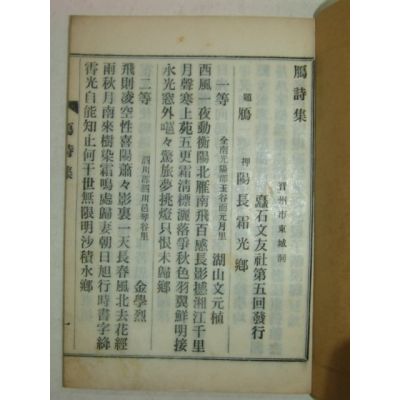 鴈詩集
晋州市東城洞
矗石文友社第五回發行
題 鴈 押 陽長霜光鄉
一等 全南光陽郡玉谷面元月里 湖山文元植
西風一夜動衡陽北雁南飛百感長影撼湘江千里
月聲寒上苑五更霜清標灑落爭秋色羽翼鮮明接
永光窓外嘔々驚旅夢挑燈只恨未歸鄉
二等 泗川郡泗川邑琴谷里 金學烈
飛則凌空性喜陽蕭々影裏一天長春風北去花經
雨秋月南來樹染霜鳴處歸妻朝日旭行時書字絳
霄光自能知止何干世無限明沙積水鄉
鴈詩集
一